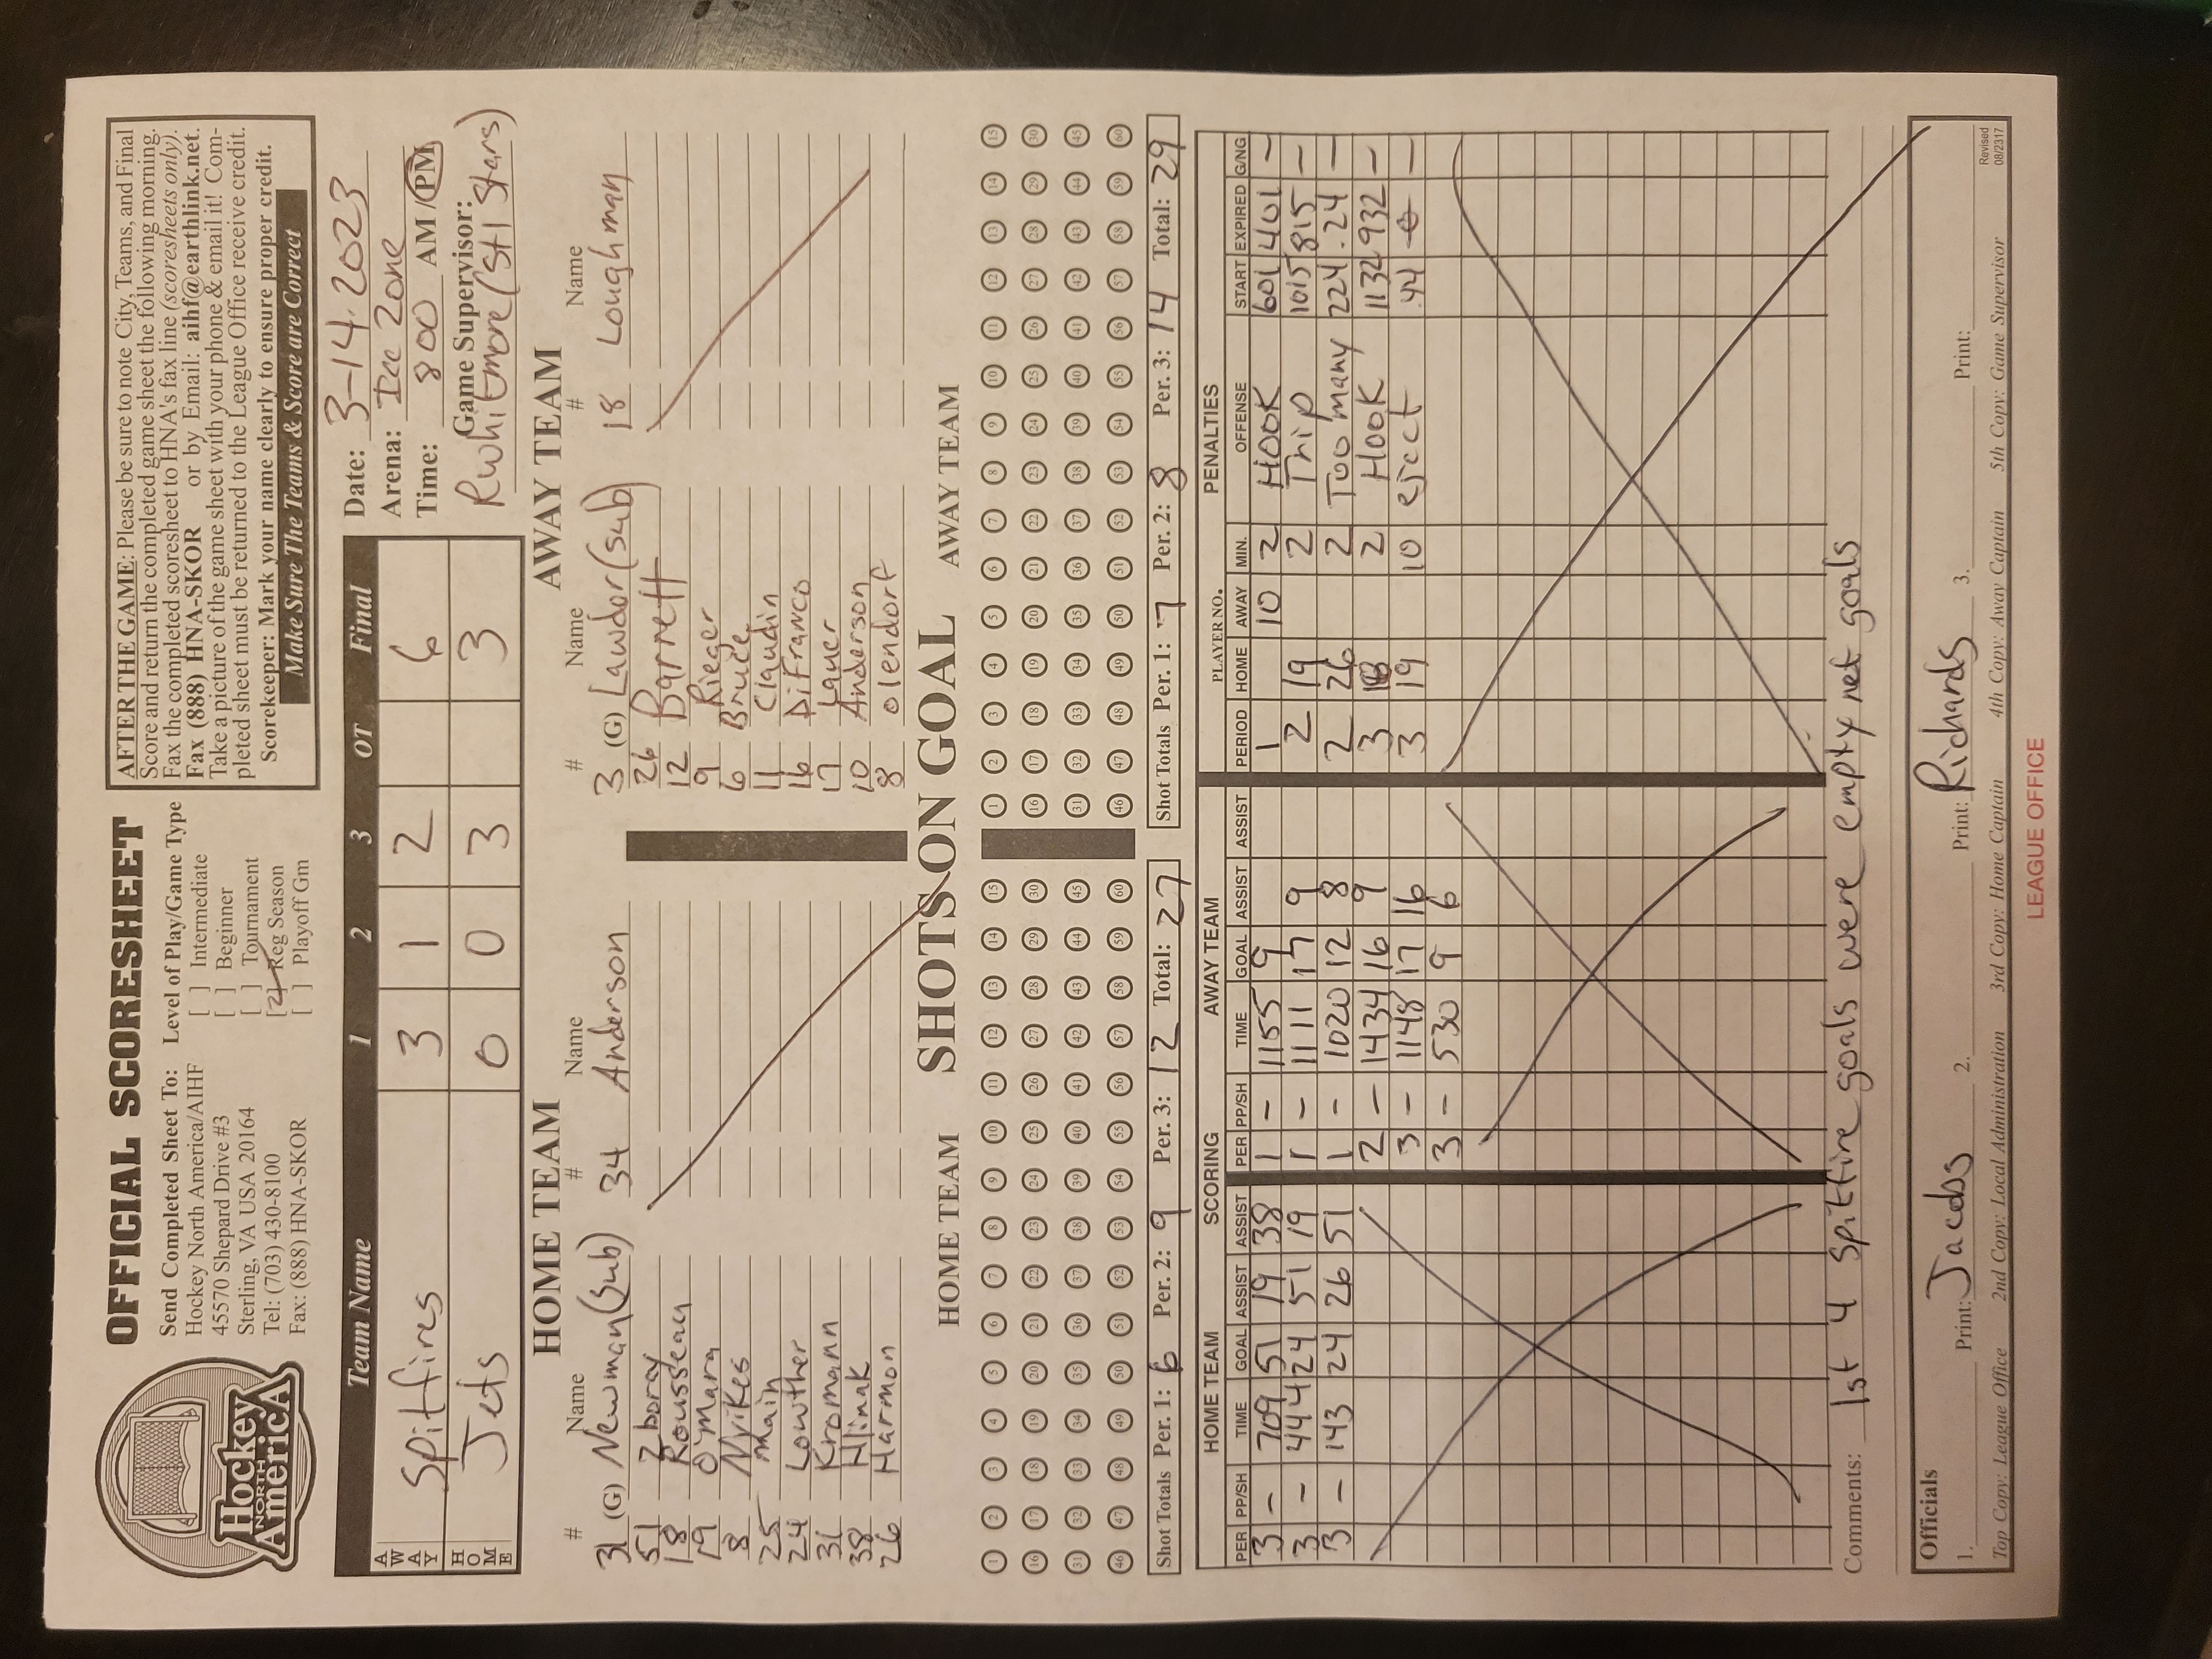 Hockey
NORTH
America
OFFICIAL SCORESHEET
Send Completed Sheet To:
Hockey North America/AIHF
45570 Shepard Drive #3
Sterling, VA USA 20164
Tel: (703) 430-8100
Fax: (888) HNA-SKOR
Level of Play/Game Type
[ ] Intermediate
[ ] Beginner
[ ] Tournament
[ ] Reg Season
[ ] Playoff Gm
AFTER THE GAME: Please be sure to note City, Teams, and Final
Score and return the completed game sheet the following morning.
Fax the completed scoresheet to HNA's fax line (scoresheets only).
Fax (888) HNA-SKOR or by Email: aihf@earthlink.net.
Take a picture of the game sheet with your phone & email it! Com-
pleted sheet must be returned to the League Office receive credit.
Scorekeeper: Mark your name clearly to ensure proper credit.
Make Sure The Teams & Score are Correct
Team Name 1 2 3 OT Final
AWAY Spitfires 3 1 2 6
HOME Jets 0 0 3 3
Date: 3-14-2023
Arena: Ice Zone
Time: 800 AM/PM
Game Supervisor:
Rwhitmore (Stl Stars)
HOME TEAM
# Name # Name
31 (G) Newman (sub) 34 Anderson
51 Zboray
18 Rousseau
19 O'mara
8 Nyikes
25 main
24 Lowther
31 Kromann
38 Hlinak
26 Harmon
AWAY TEAM
# Name # Name
3 (G) Lawdor (sub) 18 Loughman
26 Barrett
12 Rieger
9 Bruce
6
11 Claudin
16 DiFranco
17 Lauer
10 Anderson
8 olendorf
HOME TEAM SHOTS ON GOAL AWAY TEAM
1 2 3 4 5 6 7 8 9 10 11 12 13 14 15 1 2 3 4 5 6 7 8 9 10 11 12 13 14 15
16 17 18 19 20 21 22 23 24 25 26 27 28 29 30 16 17 18 19 20 21 22 23 24 25 26 27 28 29 30
31 32 33 34 35 36 37 38 39 40 41 42 43 44 45 31 32 33 34 35 36 37 38 39 40 41 42 43 44 45
46 47 48 49 50 51 52 53 54 55 56 57 58 59 60 46 47 48 49 50 51 52 53 54 55 56 57 58 59 60
Shot Totals Per. 1: 6 Per. 2: 9 Per. 3: 12 Total: 27
Shot Totals Per. 1: 7 Per. 2: 8 Per. 3: 14 Total: 29
SCORING
HOME TEAM
PER PP/SH TIME GOAL ASSIST ASSIST
3 - 709 51 19 38
3 - 444 24 51 19
3 - 143 24 26 51
AWAY TEAM
PER PP/SH TIME GOAL ASSIST ASSIST
1 - 1155 9
1 - 1111 17 9
1 - 1020 12 8
2 - 1434 16 9
3 - 1148 17 16
3 - 530 9 6
PENALTIES
PLAYER NO.
PERIOD HOME AWAY MIN. OFFENSE START EXPIRED G/NG
1 10 2 HOOK 601 401 -
2 19 2 Trip 1015 815 -
2 26 2 Too many 224 .24 -
3 2 Hook 1132 932 -
3 19 10 eject .44 -
Comments: 1st 4 Spitfire goals were empty net goals
Officials
1. Print: Jacobs 2. Print: Richards 3. Print:
Top Copy: League Office 2nd Copy: Local Administration 3rd Copy: Home Captain 4th Copy: Away Captain 5th Copy: Game Supervisor
Revised
08/2317
LEAGUE OFFICE